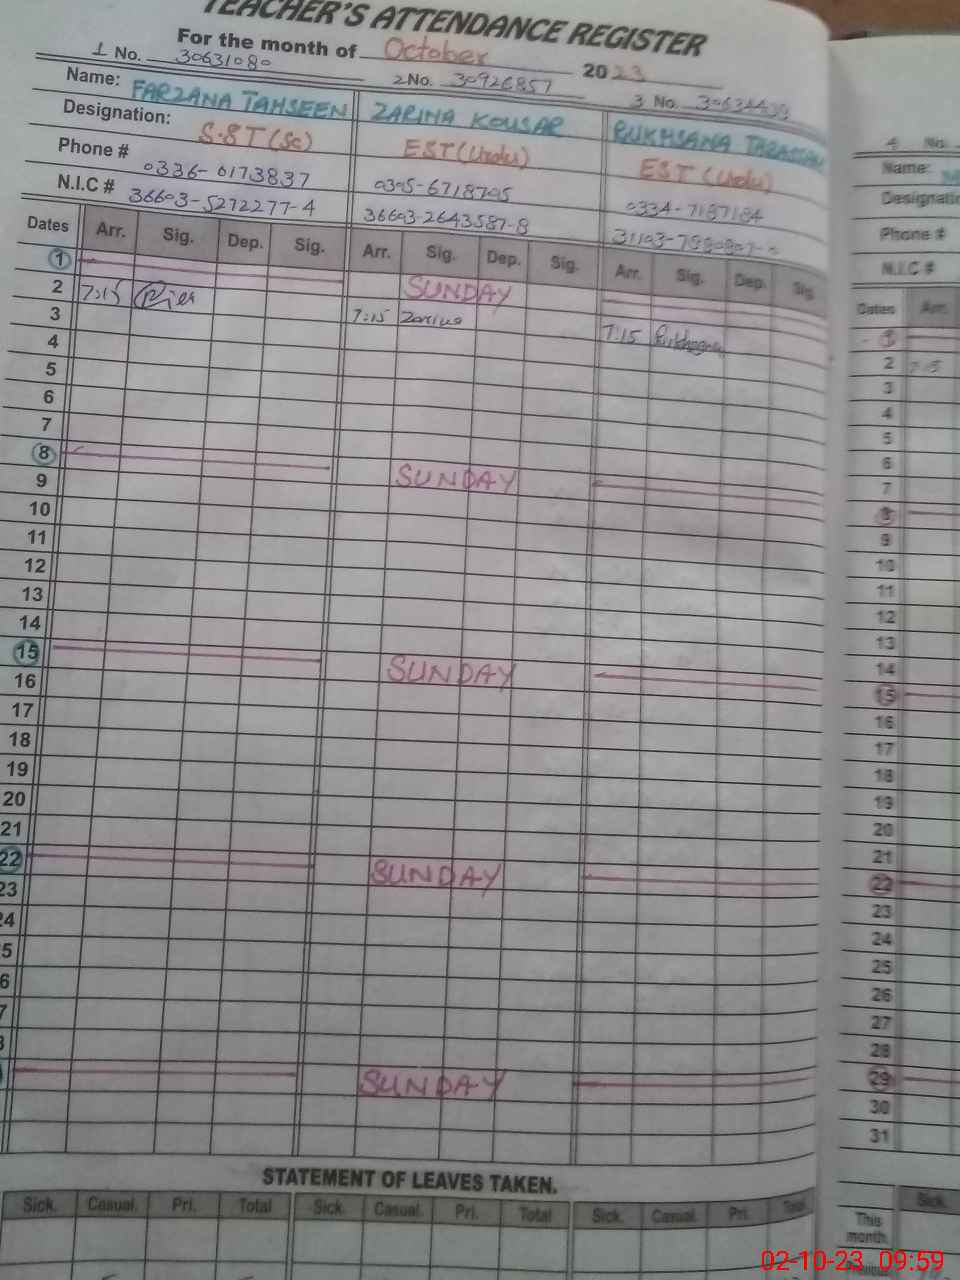 TEACHER'S ATTENDANCE REGISTER
For the month of October 2023
1 No. 30631080 2 No. 30926857 3 No.
Name: FARZANA TAHSEEN ZARINA KOUSAR RUKHSANA
Designation: S.S T (Sc) EST (Urdu) EST (Urdu)
Phone # 0336-0173837 0305-6718705 0334-7187184
N.I.C # 36603-5272277-4 36603-2643587-8
Dates Arr. Sig. Dep. Sig. Arr. Sig. Dep. Sig. Arr. Sig. Dep. Sig
1 SUNDAY
2 7:15 7:15 Zarina 7:15
3
4
5
6
7
8 SUNDAY
9
10
11
12
13
14
15 SUNDAY
16
17
18
19
20
21
22 SUNDAY
23
24
5
6
7
SUNDAY
STATEMENT OF LEAVES TAKEN.
Sick. Casual. Pri. Total Sick. Casual. Pri. Total Sick. Casual. Pri. Total
4 No.
Name:
Designati
Phone #
N.I.C #
Dates Arr.
1
2 7:15
3
4
5
6
7
8
9
10
11
12
13
14
15
16
17
18
19
20
21
22
23
24
25
26
27
28
29
30
31
Sick.
This
month.
02-10-23 09:59